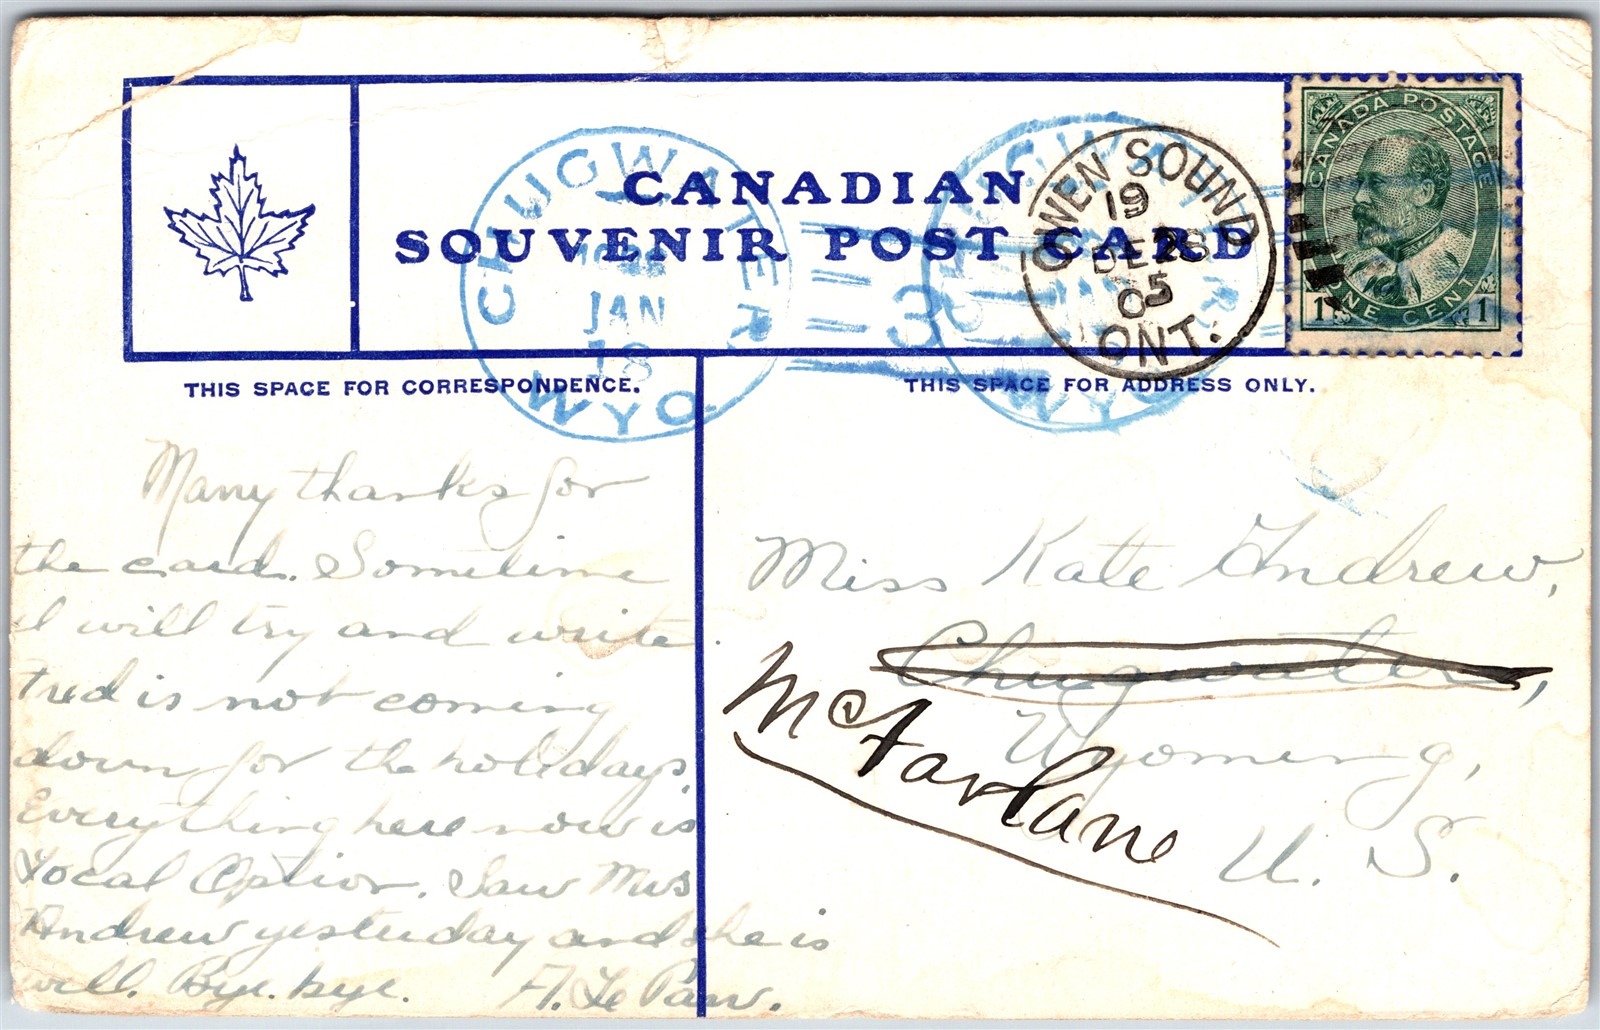 CANADIAN
SOUVENIR POST CARD
CHUGWATER
JAN
18
WYO.
3
CHUGWATER
WYO.
OWEN SOUND
19
DE 28
05
ONT.
CANADA POSTAGE
1 ONE CENT 1
THIS SPACE FOR CORRESPONDENCE.
THIS SPACE FOR ADDRESS ONLY.
Many thanks for
the card. Sometime
I will try and write.
Fred is not coming
down for the holidays.
Everything here now is
Local Option. Saw Mrs
Andrew yesterday and she is
well. Bye. bye. A. Le Pan.
Miss Kate Andrew,
Chugwater,
Wyoming,
U. S.
McFarlane